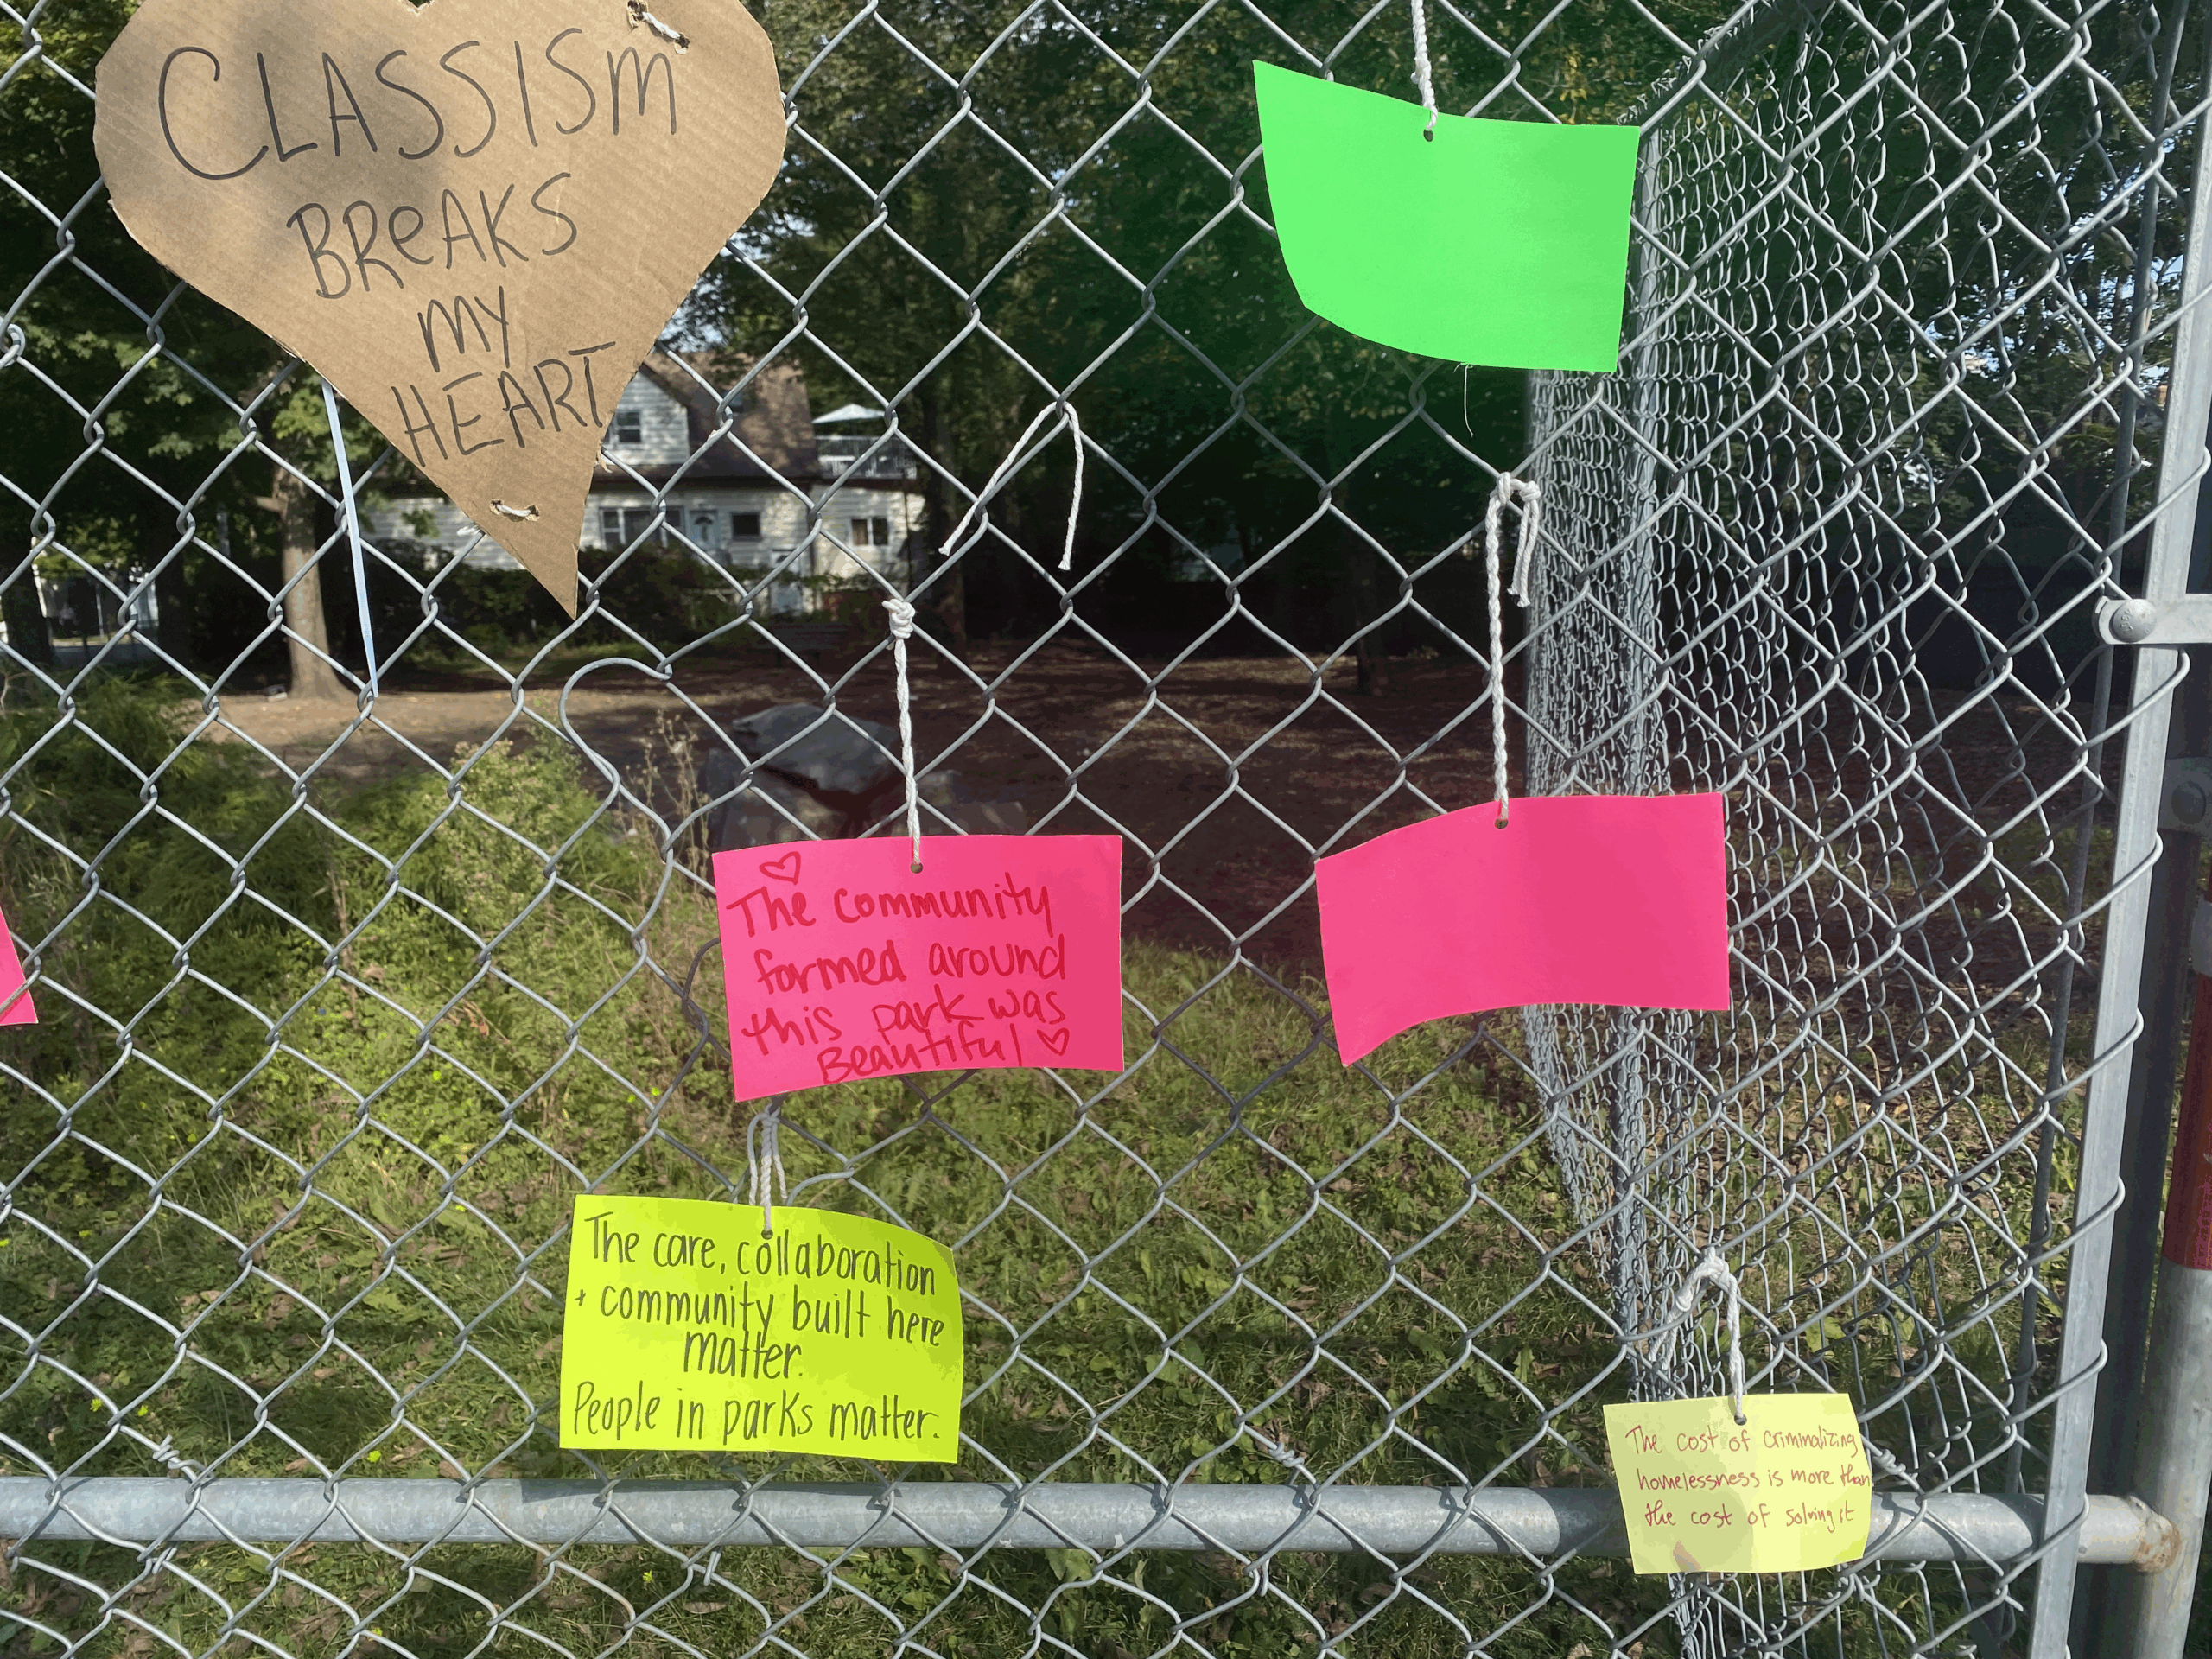 CLASSISM
BREAKS
MY
HEART
The community
formed around
this park was
Beautiful
The care, collaboration
+ community built here
matter.
People in parks matter.
The cost of criminalizing
homelessness is more than
the cost of solving it